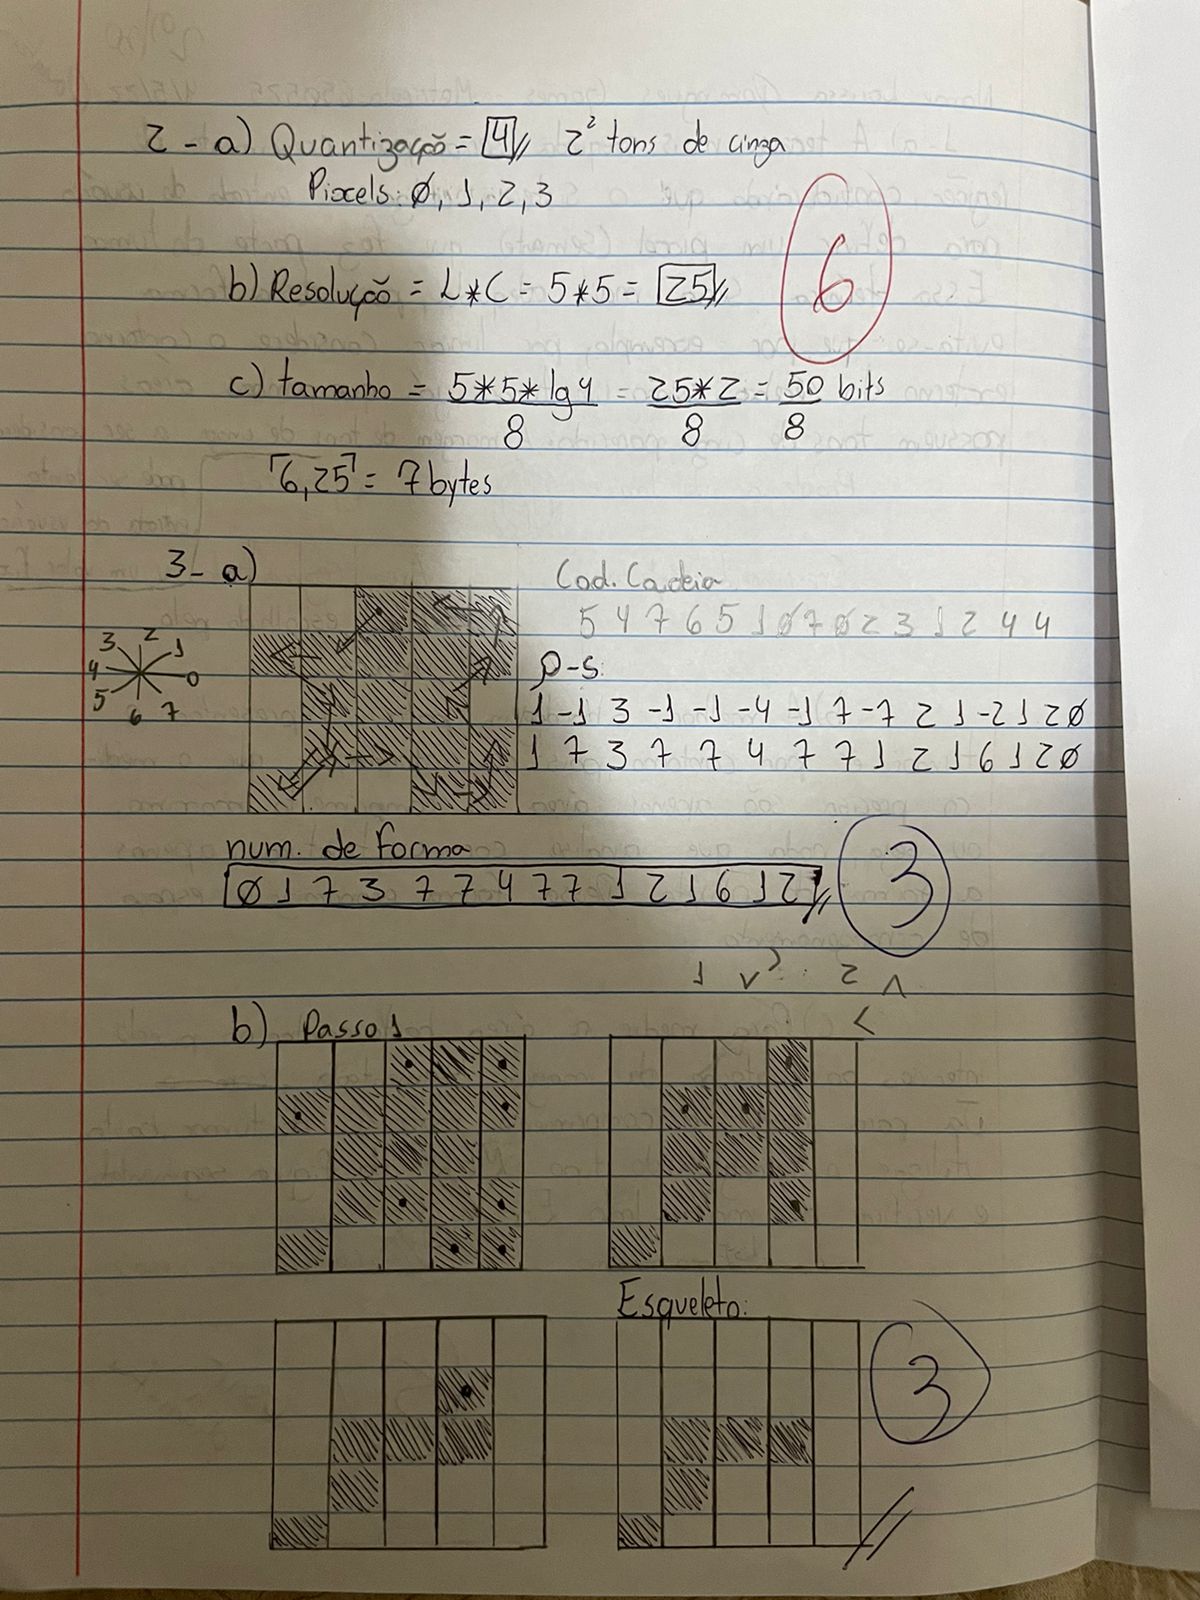 2 - a) Quantização = 4 2² tons de cinza
Pixels: 0, 1, 2, 3
6
b) Resolução = L*C = 5*5 = 25
c) tamanho = 5*5*lg4 = 25*2 = 50 bits
8 8 8
⌈6,25⌉ = 7 bytes
3- a)
Cod. Cadeia
5 4 7 6 5 1 0 7 0 2 3 1 2 4 4
3 2 1
4 0
5 6 7
p-s:
1 -1 3 -1 -1 -4 -1 7 -7 2 1 -2 1 2 0
1 7 3 7 7 4 7 7 1 2 1 6 1 2 0
num. de forma
0 1 7 3 7 7 4 7 7 1 2 1 6 1 2
3
b) Passo 1
Esqueleto:
3